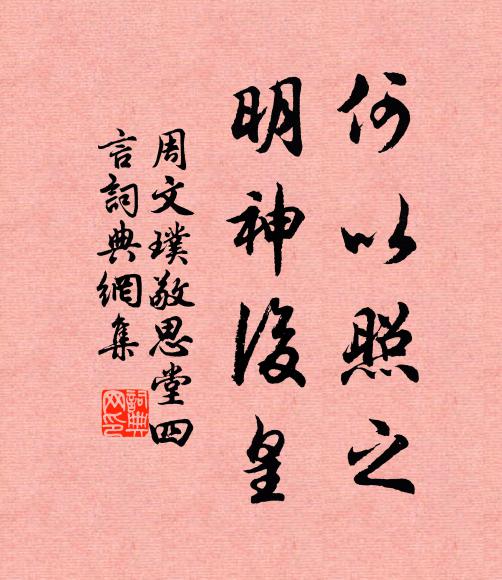 何以照之
明神後皇
周文璞敬思堂四
言詞典網集
詞典
网印